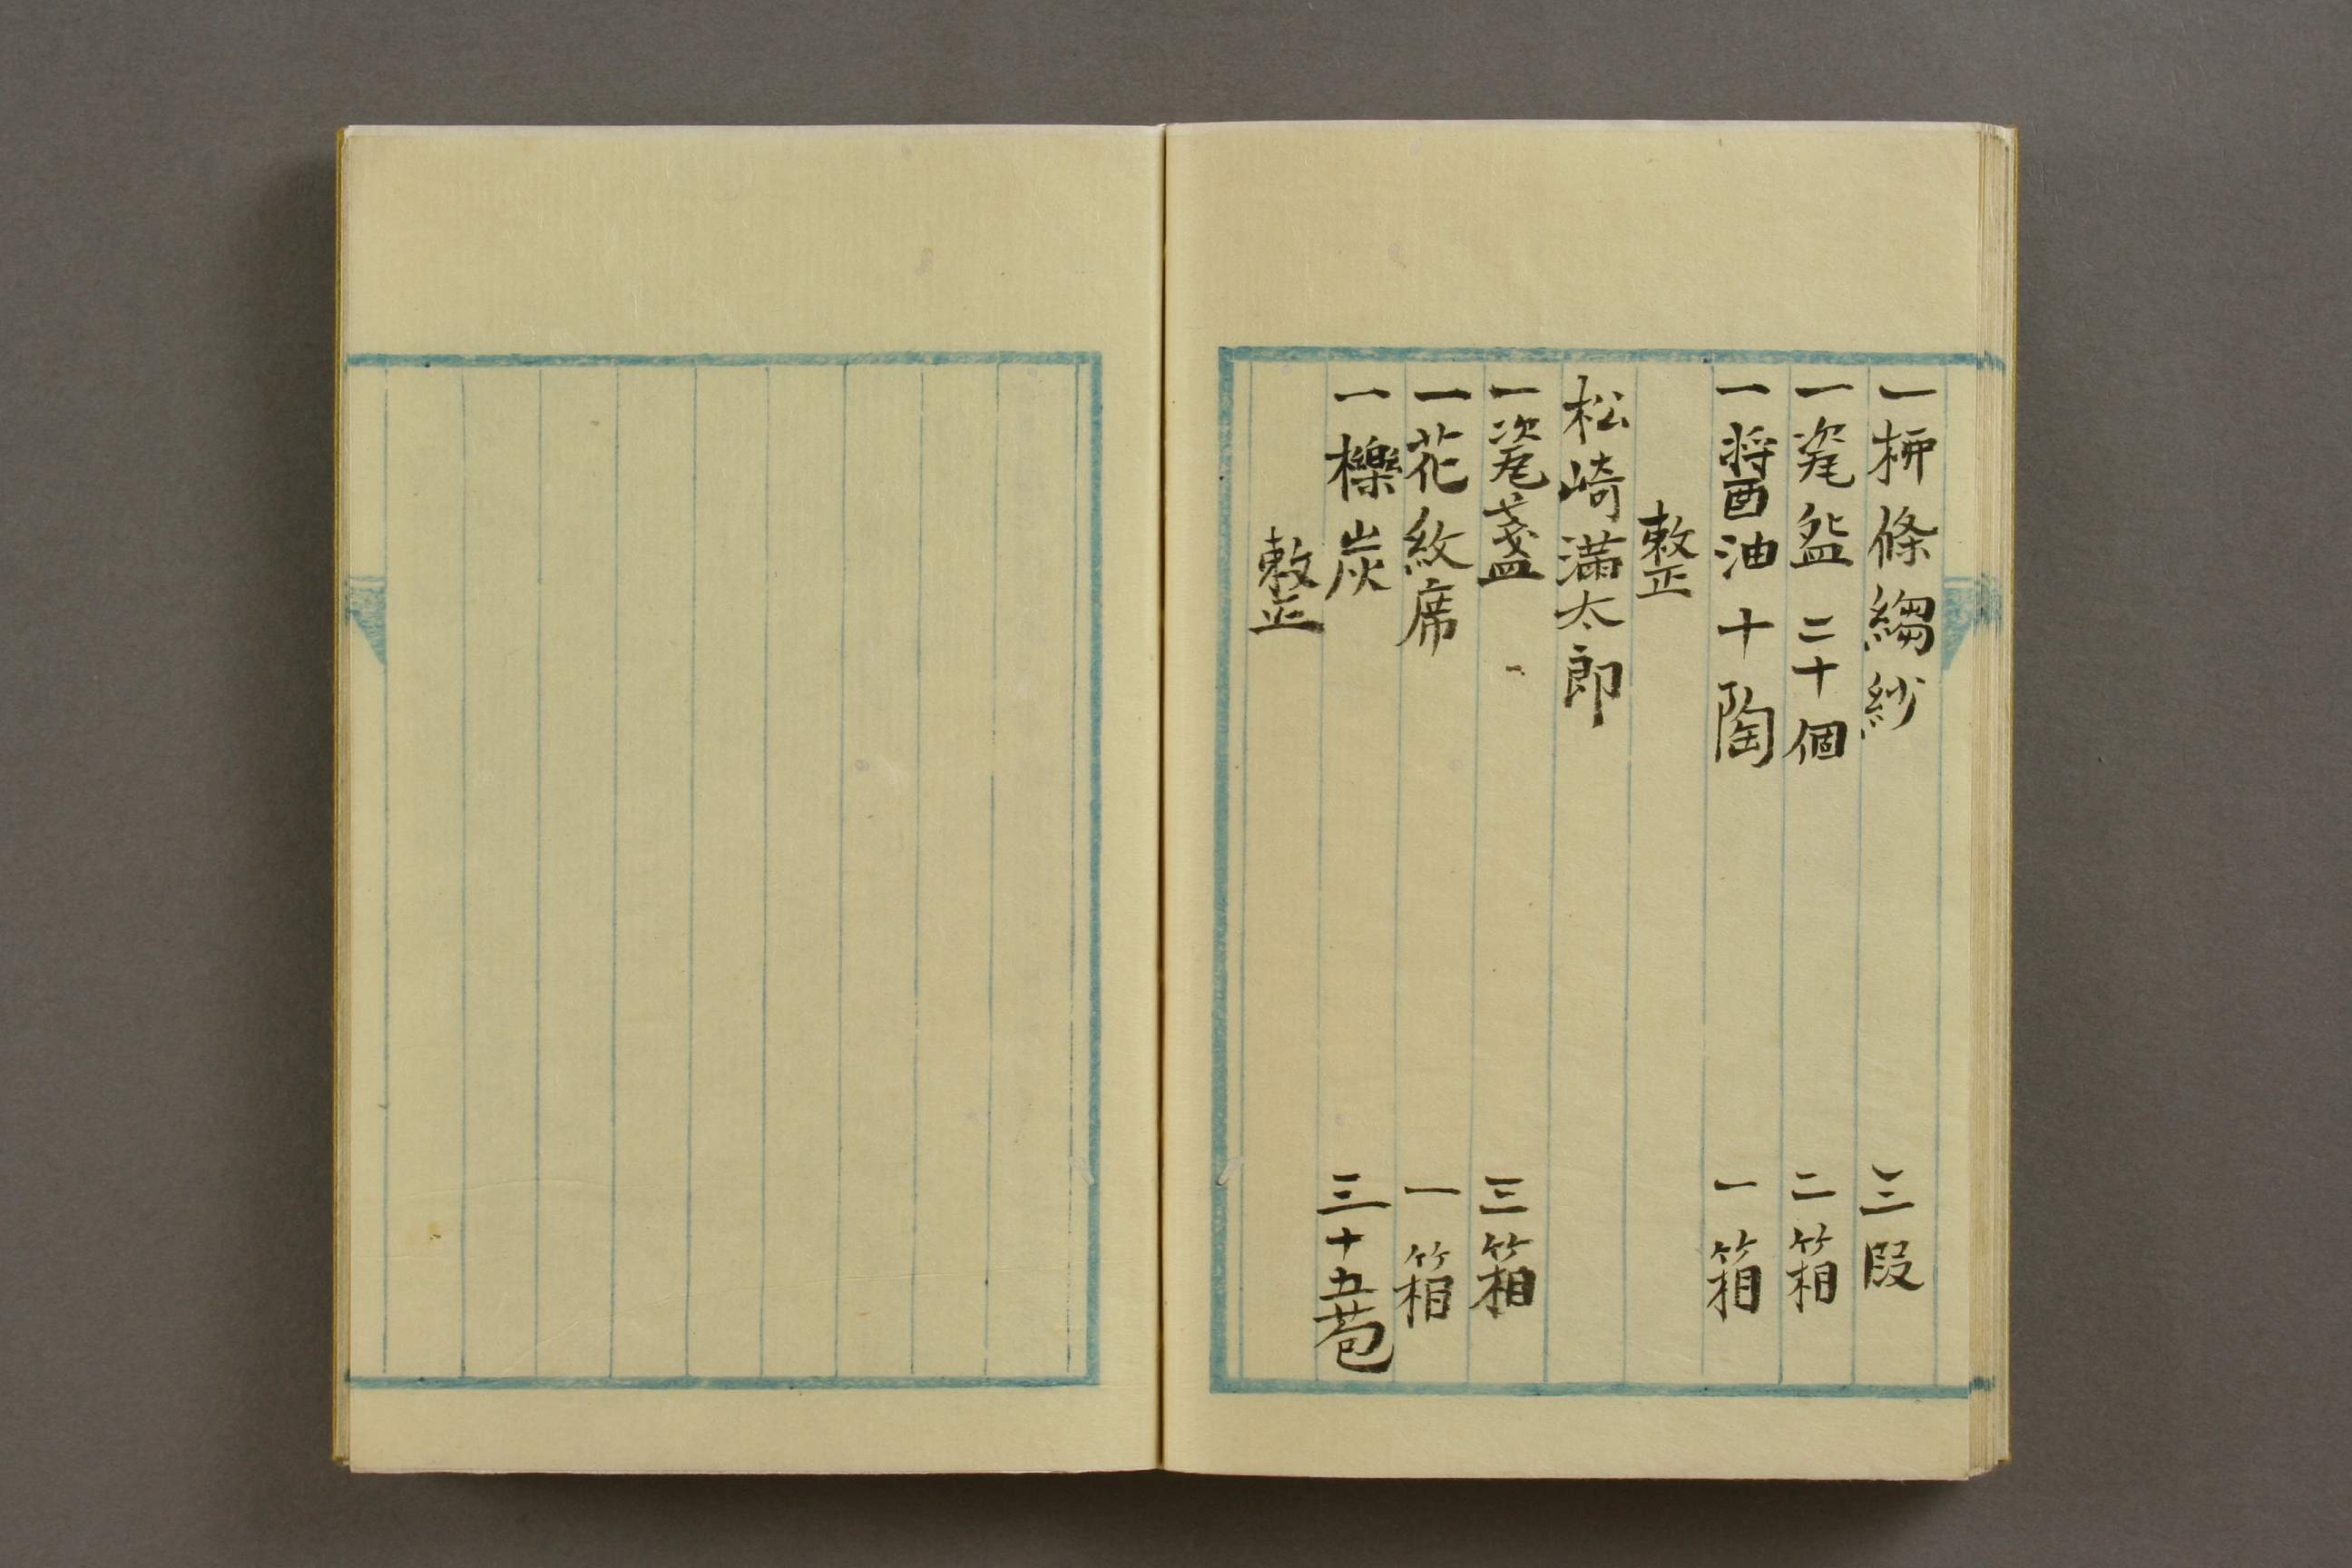 一柳條縐紗 三段
一瓷盌 二十個 二箱
一醬油 十陶 一箱
整
松崎滿太郎
一瓷盞 三箱
一花紋席 一箱
一櫟炭 三十五苞
整